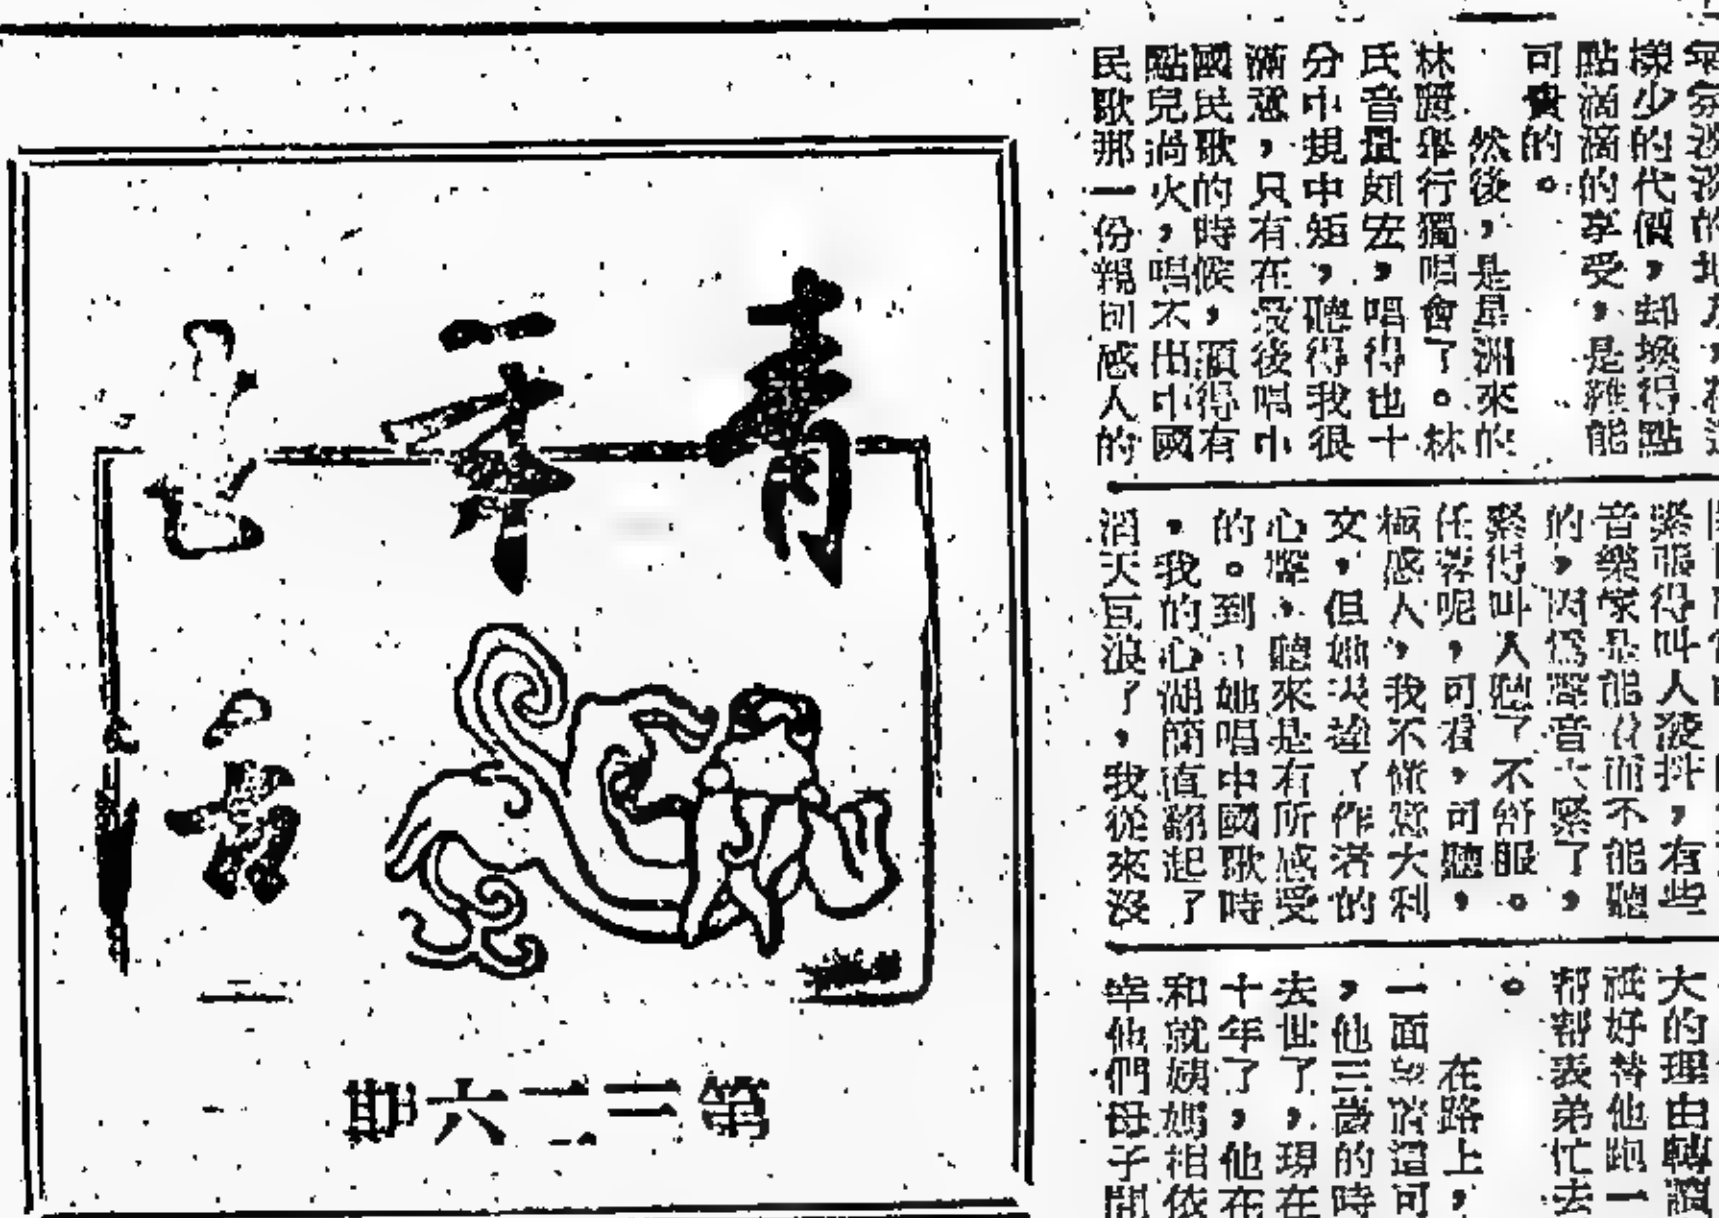 樣少的代價，却換得點
點滴滴的享受，是難能
可貴的。
然後，是星洲來的
林麗舉行獨唱會了。林
氏音量頗宏，唱得也十
分中規中矩，聽得我很
滿意，只有在最後唱中
國民歌的時候，顯得有
點兒過火，唱不出中國
民歌那一份親切感人的
緊張得叫人發抖，有些
音樂家是能看而不能聽
的，因爲聲音太緊了，
緊得叫人聽了不舒服。
任蓉呢，可看，可聽，
極感人，我不懂意大利
文，但她表達了作者的
心聲，聽來是有所感受
的。到了她唱中國歌時
，我的心湖簡直翻起了
滔天巨浪了，我從來沒
大的理由轉讓
祗好替他跑一
帮帮表弟忙去
。
在路上，
一面這可
，他三歲的時
去世了，現在
十年了，他在
和就姨媽相依
幸他們母子間
青年
第三二六期